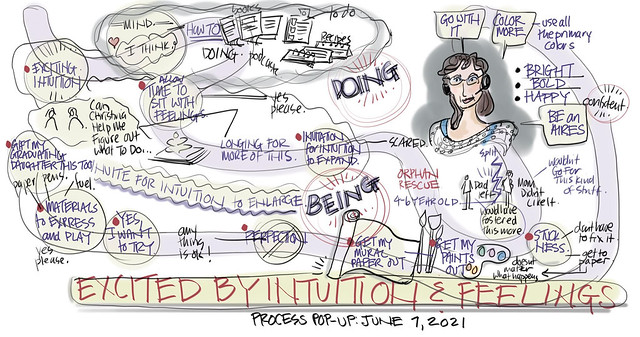 MIND.
I THINK.
HOW TO
books
to do
Recipes
DOING.
podcast
EXCITING
INTUITION
ALLOW
TIME TO
SIT WITH
FEELINGS.
yes
please.
DOING
GO WITH
IT
COLOR
MORE
use all
the primary
colors
BRIGHT
BOLD
HAPPY
confident
BE an
AIRES
Can
Christina
Help Me
Figure out
what To Do...
LONGING FOR
MORE OF THIS.
INVITATION
FOR INTUITION
to EXPAND.
SCARED.
GIFT MY
GRADUATING
DAUGHTER THIS TOO
paper
pens.
fuel.
INVITE FOR INTUITION to ENLARGE
BEING
ORPHAN
RESCUE
4-6 YEAR OLD
split
Dad
left
Mom
Didn't
Like It.
wouldn't
Go For
This kind
of stuff.
would have
fostered
this more
MATERIALS
to EXPRESS
and PLAY
yes
please.
YES
I WANT
to TRY
any
thing
is ok!
PERFECTION
GET MY
MURAL
PAPER OUT
GET MY
PAINTS
OUT
doesn't
matter
what happens
STUCK
NESS.
don't have
to fix it.
get to
paper
EXCITED BY INTUITION & FEELINGS
PROCESS POP-UP: JUNE 7, 2021